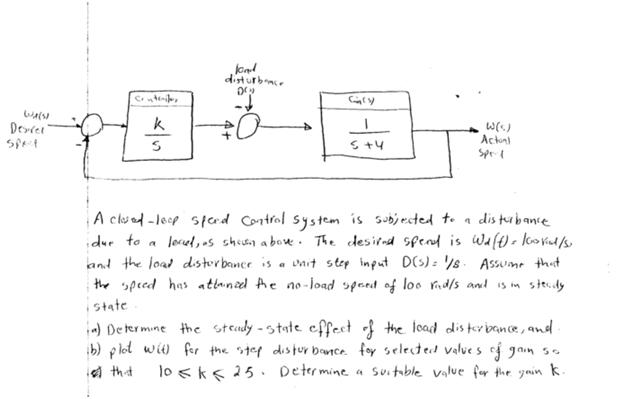 load
disturbance
D(s)
Controller
G(s)
Wd(s)
Desired
Speed
-
K
S
-
+
1
S + 4
W(s)
Actual
Speed
-
A closed-loop speed control system is subjected to a disturbance
due to a load, as shown above. The desired speed is Wd(t) = 100 rad/s,
and the load disturbance is a unit step input D(s) = 1/s. Assume that
the speed has attained the no-load speed of 100 rad/s and is in steady
state.
a) Determine the steady-state effect of the load disturbance, and
b) plot w(t) for the step disturbance for selected values of gain so
that 10 ≤ K ≤ 25. Determine a suitable value for the gain K.